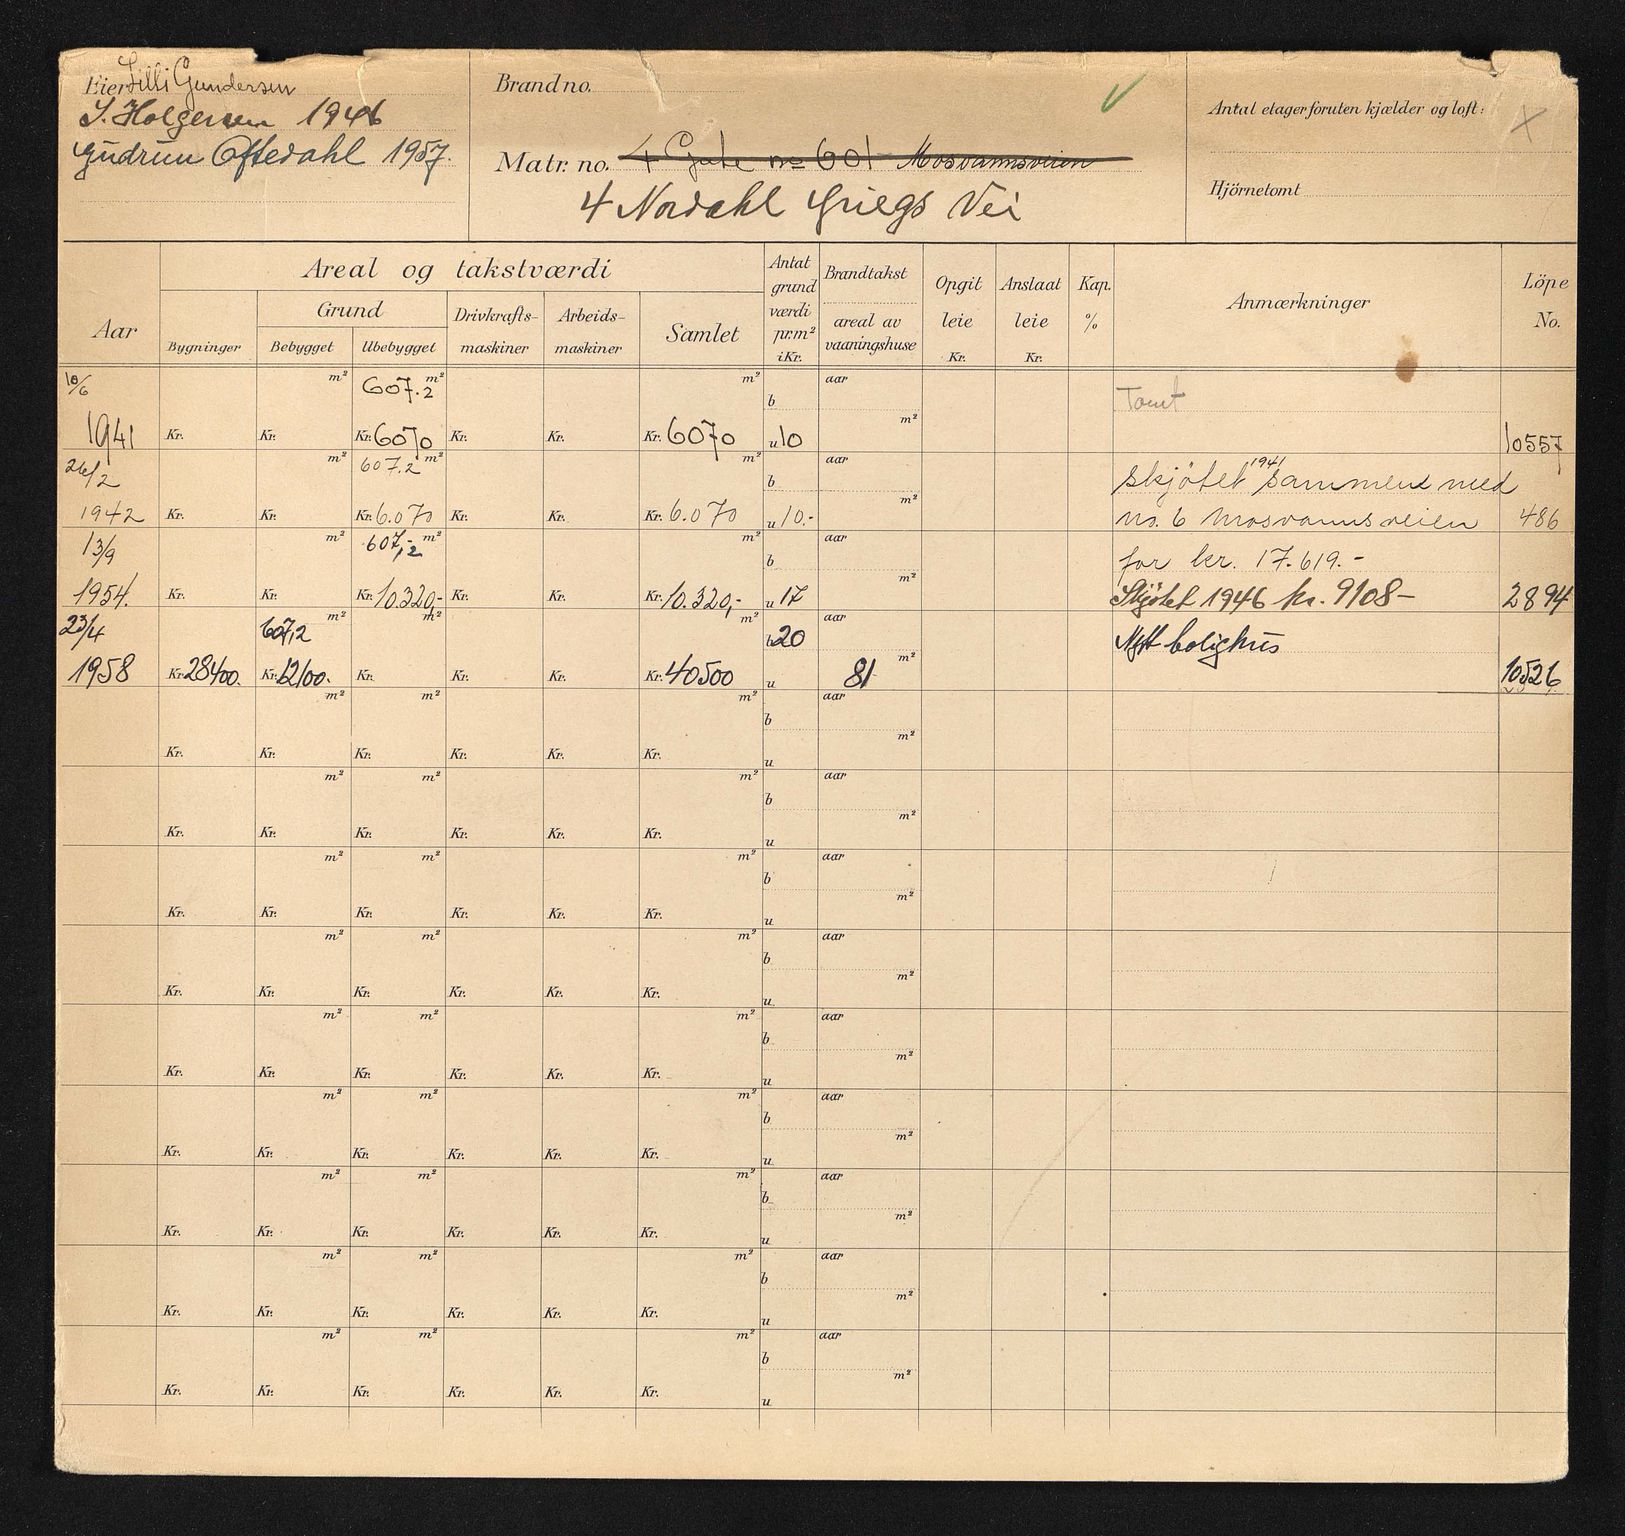 Eier Lilli Gundersen
S. Holgersen 1946
Gudrun Oftedahl 1957.
Brand no.
Matr. no. 4 Gate no 601 Mosvannsveien
4 Nordahl Griegs Vei
Antal etager foruten kjælder og loft:
Hjörnetomt
Aar
Areal og takstværdi
Bygninger
Grund
Bebygget Ubebygget
Drivkrafts-
maskiner
Arbeids-
maskiner
Samlet
Antat
grund
værdi
pr.m²
i Kr.
Brandtakst
areal av
vaaningshuse
Opgit
leie
Kr.
Anslaat
leie
Kr.
Kap.
%
Anmærkninger
Löpe
No.
10/6 m² 607.2 m² m² b aar Tomt
m²
1941 Kr. Kr. Kr. 6070 Kr. Kr. Kr. 6070 u 10 10557
26/2 m² 607.2 m² m² b aar Skjötet 1941 sammen med
m²
1942 Kr. Kr. Kr. 6.070 Kr. Kr. Kr. 6.070 u 10.- no. 6 Mosvannsveien 486
13/9 m² 607,2 m² m² b aar for kr. 17.619.-
m²
1954. Kr. Kr. Kr. 10.320,- Kr. Kr. Kr. 10.320,- u 17 Skjötet 1946 kr. 9108- 2894
23/4 607,2 m² m² m² b 20 aar Nytt bolighus
m²
1958 Kr. 28400. Kr. 12100. Kr. Kr. Kr. Kr. 40500 u 81 10526
m² m² m² aar
b
m²
Kr. Kr. Kr. Kr. Kr. Kr. u
m² m² m² aar
b
m²
Kr. Kr. Kr. Kr. Kr. Kr. u
m² m² m² aar
b
m²
Kr. Kr. Kr. Kr. Kr. Kr. u
m² m² m² aar
b
m²
Kr. Kr. Kr. Kr. Kr. Kr. u
m² m² m² aar
b
m²
Kr. Kr. Kr. Kr. Kr. Kr. u
m² m² m² aar
b
m²
Kr. Kr. Kr. Kr. Kr. Kr. u
m² m² m² aar
b
m²
Kr. Kr. Kr. Kr. Kr. Kr. u
m² m² m² aar
b
m²
Kr. Kr. Kr. Kr. Kr. Kr. u
m² m² m² aar
b
m²
Kr. Kr. Kr. Kr. Kr. Kr. u